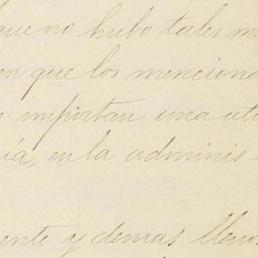 que no hubo tales
en que los menciona
importan una
ía, en la adminis-
ente y demas llenos